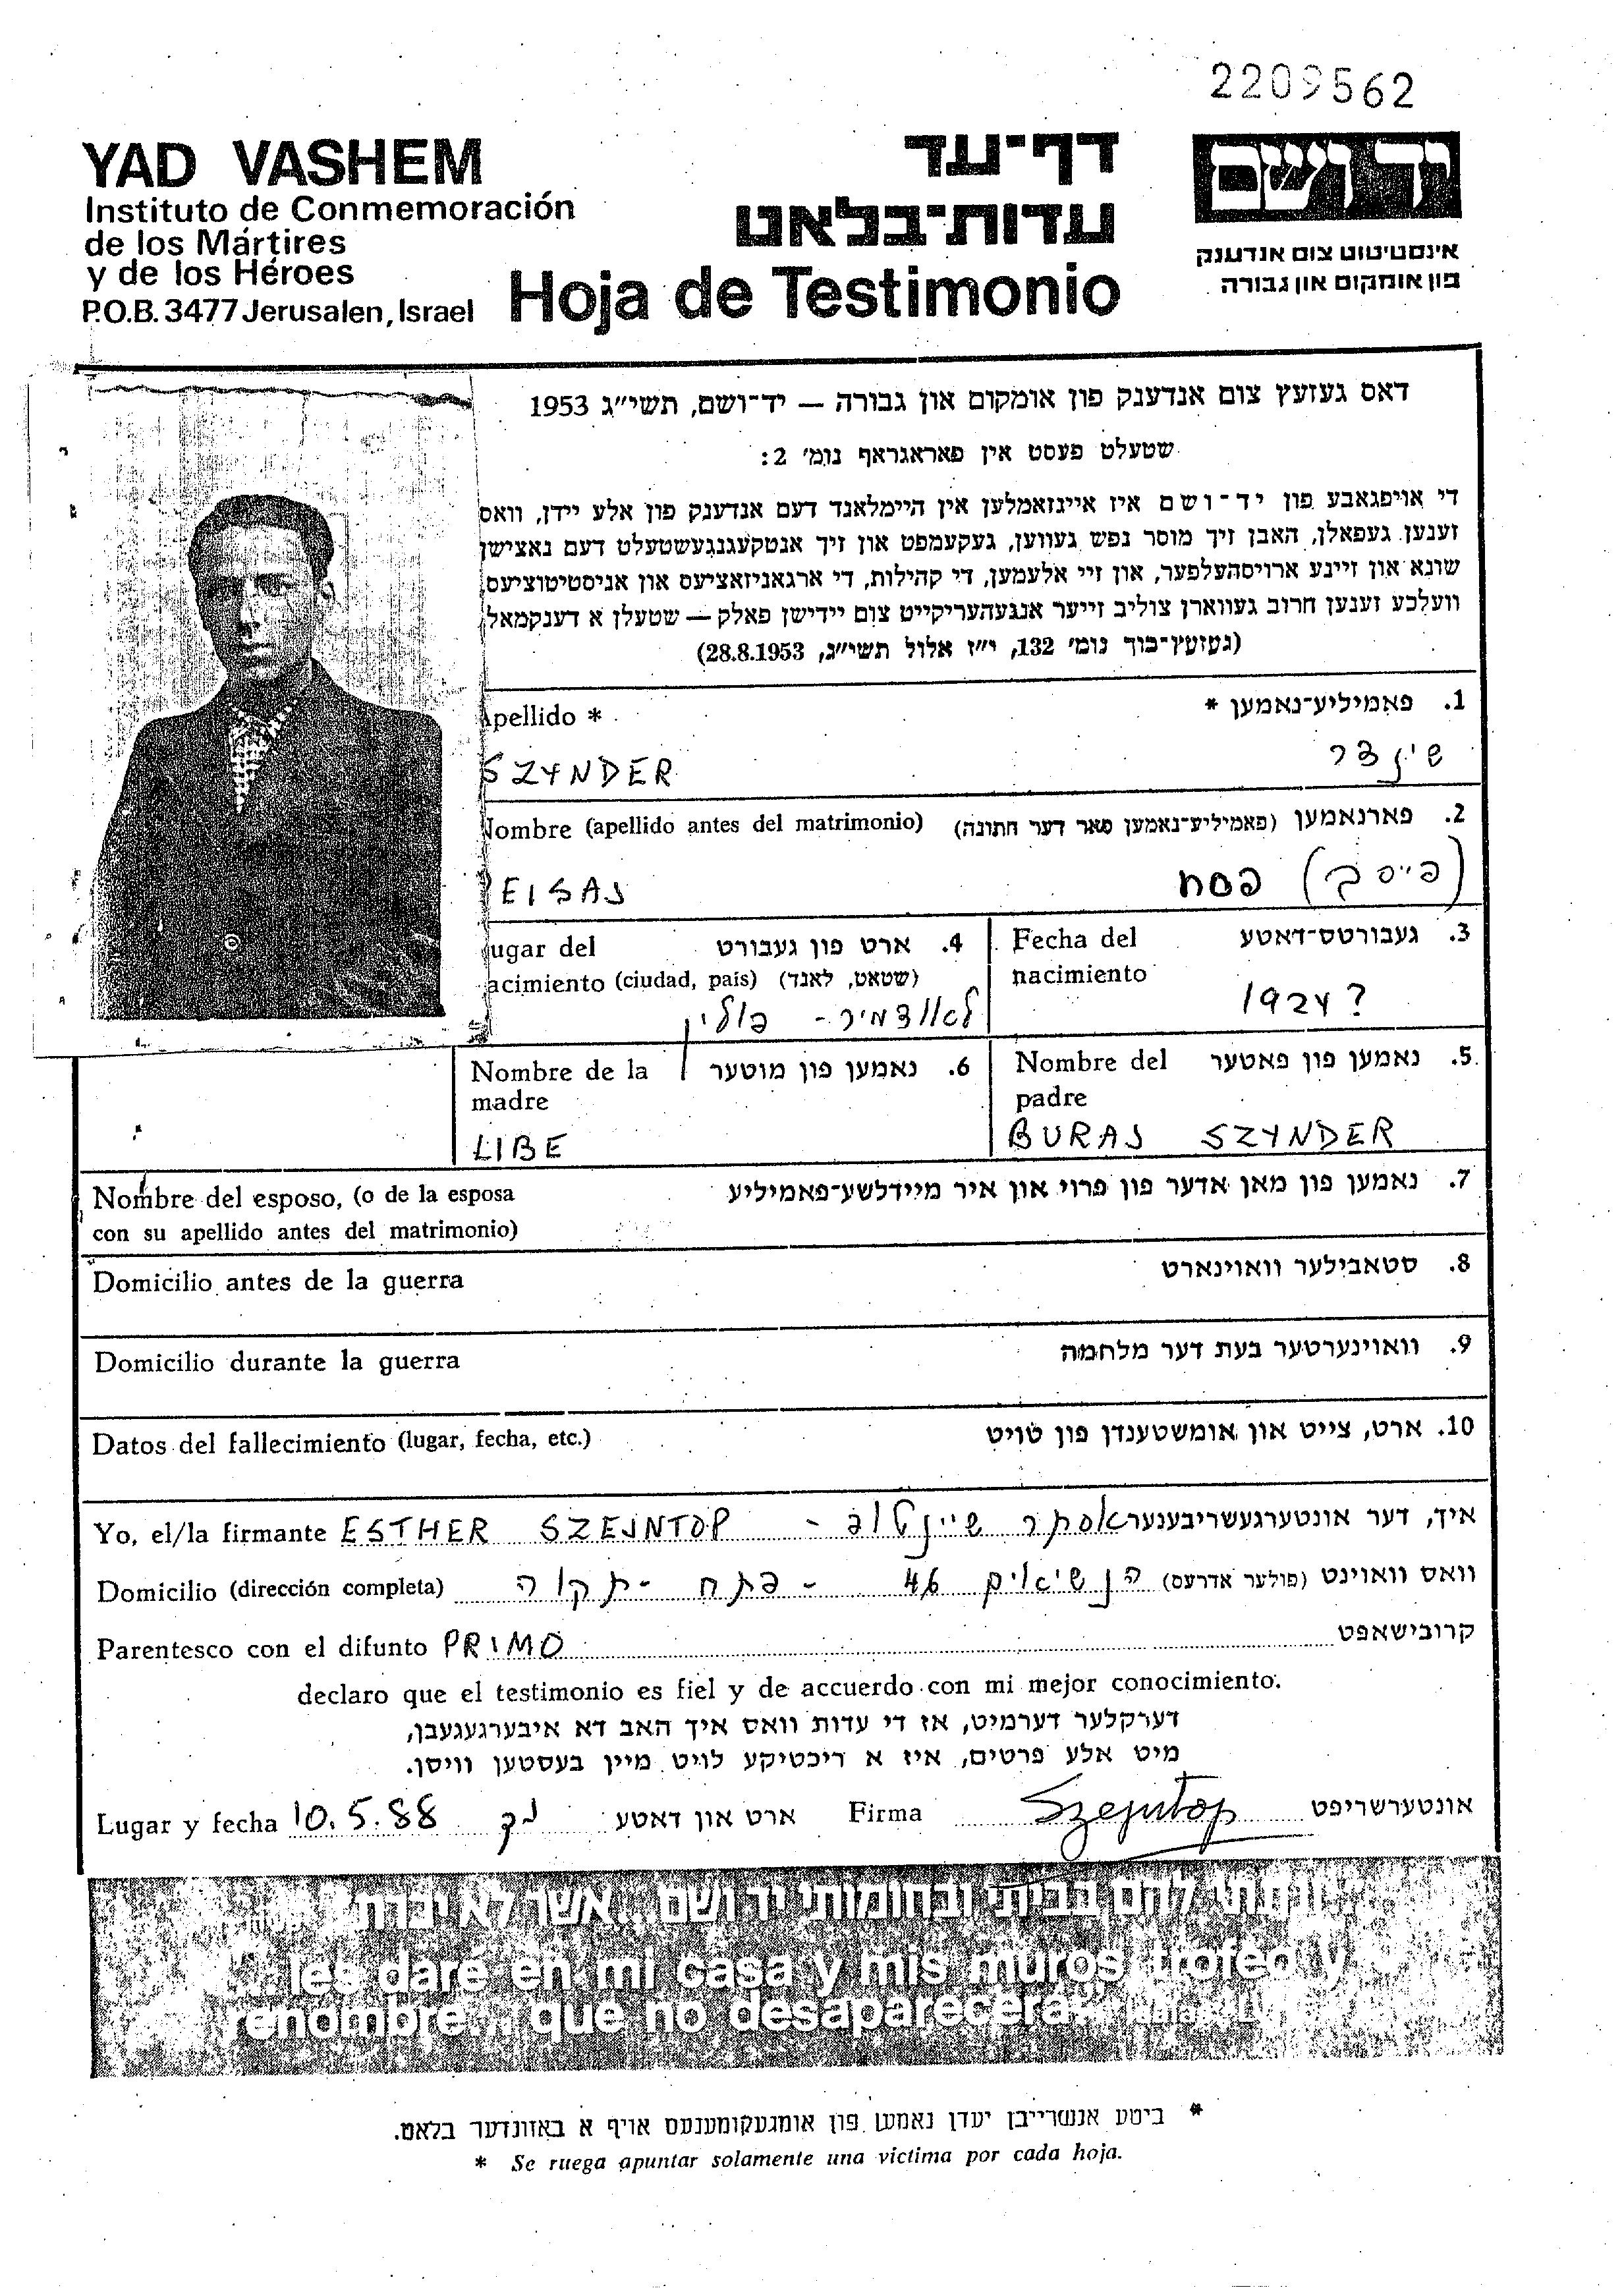 2209562
YAD VASHEM
Instituto de Conmemoración
de los Mártires
y de los Héroes
P.O.B. 3477 Jerusalen, Israel
דף־עד
עדות־בלאט
Hoja de Testimonio
יד ושם
אינסטיטוט צום אנדענק
פון אומקום און גבורה
דאס געזעץ צום אנדענק פון אומקום און גבורה — יד־ושם, תשי״ג 1953
שטעלט פעסט אין פאראגראף נומ׳ 2:
די אויפגאבע פון יד־ושם איז איינזאמלען אין היימלאנד דעם אנדענק פון אלע יידן, וואס
זענען געפאלן, האבן זיך מוסר נפש געווען, געקעמפט און זיך אנטקעגנגעשטעלט דעם נאצישן
שונא און זיינע ארויסהעלפער, און זיי אלעמען, די קהילות, די ארגאניזאציעס און אניסטיטוציעס,
וועלכע זענען חרוב געווארן צוליב זייער אנגעהעריקייט צום יידישן פאלק — שטעלן א דענקמאל
(געזעץ־בוך נומ׳ 132, י״ז אלול תשי״ג, 28.8.1953)
Apellido * 1. פאמיליע־נאמען *
SZYNDER שינדר
Nombre (apellido antes del matrimonio) 2. פארנאמען (פאמיליע־נאמען פאר דער חתונה)
PEISAJ פסח (פייסך)
Lugar del 4. ארט פון געבורט Fecha del 3. געבורטס־דאטע
nacimiento (ciudad, país) (שטאט, לאנד) nacimiento
- פולין 1924?
Nombre de la 6. נאמען פון מוטער Nombre del 5. נאמען פון פאטער
madre padre
LIBE BURAJ SZYNDER
Nombre del esposo, (o de la esposa 7. נאמען פון מאן אדער פון פרוי און איר מיידלשע־פאמיליע
con su apellido antes del matrimonio)
Domicilio antes de la guerra 8. סטאבילער וואוינארט
Domicilio durante la guerra 9. וואוינערטער בעת דער מלחמה
Datos del fallecimiento (lugar, fecha, etc.) 10. ארט, צייט און אומשטענדן פון טויט
Yo, el/la firmante ESTHER SZEJNTOP - אסתר שיינטופ איך, דער אונטערגעשריבענער
Domicilio (dirección completa) הנשיאים 46 - פתח - תקוה וואס וואוינט (פולער אדרעס)
Parentesco con el difunto PRIMO קרובישאפט
declaro que el testimonio es fiel y de accuerdo con mi mejor conocimiento.
דערקלער דערמיט, אז די עדות וואס איך האב דא איבערגעגעבן,
מיט אלע פרטים, איז א ריכטיקע לויט מיין בעסטען וויסן.
Lugar y fecha 10.5.88 ארט און דאטע Firma Szejntop אונטערשריפט
״...ונתתי להם בביתי ובחומותי יד ושם... אשר לא יכרת״
"...les daré en mi casa y mis muros, trofeo y
renombre... que no desaparecerá"
* ביטע אנשרייבן יעדן נאמען פון אומגעקומענעם אויף א באזונדער בלאט.
* Se ruega apuntar solamente una victima por cada hoja.